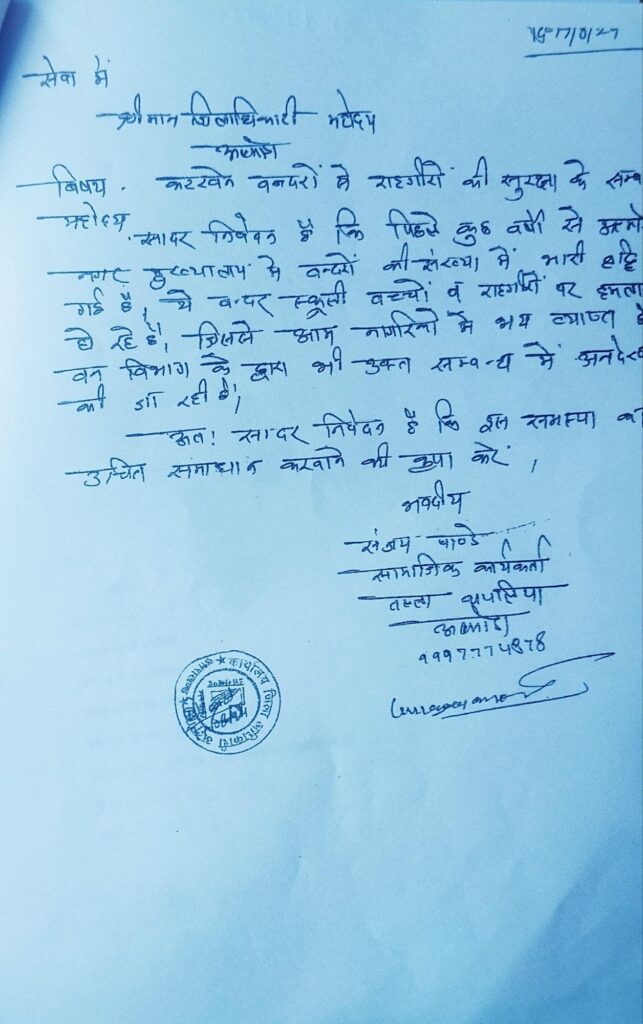 सेवा में
श्रीमान जिलाधिकारी महोदय
अल्मोड़ा
विषय. कटखने बन्दरों से राहगीरों की सुरक्षा के सम्ब
महोदय
सादर निवेदन है कि पिछले कुछ वर्षों से
नगर मुख्यालय में बन्दरों की संख्या में भारी वृद्धि
गई है, ये बन्दर स्कूली बच्चों व राहगीरों पर हमला
हो रहे हैं, जिससे आम नागरिकों में भय व्याप्त है
वन विभाग के द्वारा भी उक्त सम्बन्ध में अनदेख
की जा रही है,
अतः सादर निवेदन है कि इस समस्या का
उचित समाधान करवाने की कृपा करें,
भवदीय
संजय पाण्डे
सामाजिक कार्यकर्ता
तल्ला
अल्मोड़ा
9997774878
कार्यालय जिला अधिकारी